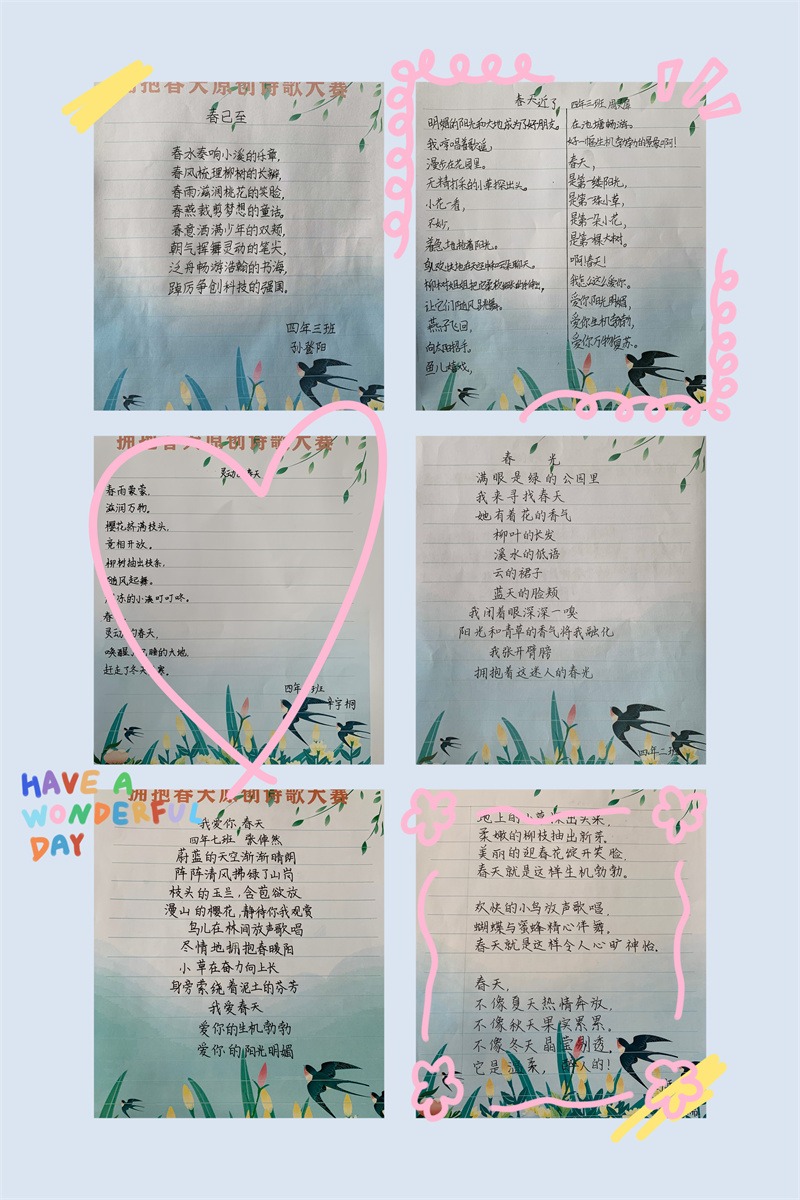 拥抱春天原创诗歌大赛
春已至
春水奏响小溪的乐章,
春风梳理柳树的长辫,
春雨滋润桃花的笑脸,
春燕裁剪梦想的童话。
春意洒满少年的双颊,
朝气挥舞灵动的笔尖,
泛舟畅游浩瀚的书海,
踔厉争创科技的强国。
四年三班
孙誉阳
春天近了
四年三班
明媚的阳光和大地成为了好朋友。
我哼唱着歌谣,
漫步在花园里。
无精打采的小草探出头。
小花一看,
不妙,
着急地抱着阳光。
让它们随风飘舞。
燕子飞回,
向太阳招手。
鱼儿嬉戏,
在池塘畅游。
好一幅生机勃勃的景象啊!
春天,
是第一缕阳光,
是第一株小草,
是第一朵小花,
是第一棵大树。
啊!春天!
我怎么这么爱你。
爱你阳光明媚,
爱你生机勃勃,
爱你万物复苏。
拥抱春天原创诗歌大赛
灵动的春天
春雨蒙蒙,
滋润万物。
樱花挤满枝头,
竞相开放。
柳树抽出枝条,
随风起舞。
冻的小溪叮叮咚。
春
灵动的春天,
唤醒了沉睡的大地,
赶走了冬天 寒。
四年 班
辛宇桐
春 光
满眼是绿的公园里
我来寻找春天
她有着花的香气
柳叶的长发
溪水的低语
云的裙子
蓝天的脸颊
我闭着眼深深一嗅
阳光和青草的香气将我融化
我张开臂膀
拥抱着这迷人的春光
四年二班
HAVE A
WONDERFUL
DAY
拥抱春天原创诗歌大赛
我爱你,春天
四年七班 张倬然
蔚蓝的天空渐渐晴朗
阵阵清风拂绿了山岗
枝头的玉兰,含苞欲放
漫山的樱花,静待你我观赏
鸟儿在林间放声歌唱
尽情地拥抱春暖阳
小草在奋力向上长
身旁萦绕着泥土的芬芳
我爱春天
爱你的生机勃勃
爱你的阳光明媚
地上的小草探出头来,
柔嫩的柳枝抽出新芽,
美丽的迎春花绽开笑脸,
春天就是这样生机勃勃。
欢快的小鸟放声歌唱,
蝴蝶与蜜蜂精心伴舞。
春天就是这样令人心旷神怡。
春天,
不像夏天热情奔放,
不像秋天果实累累,
不像冬天晶莹剔透,
它是温柔,醉人的!